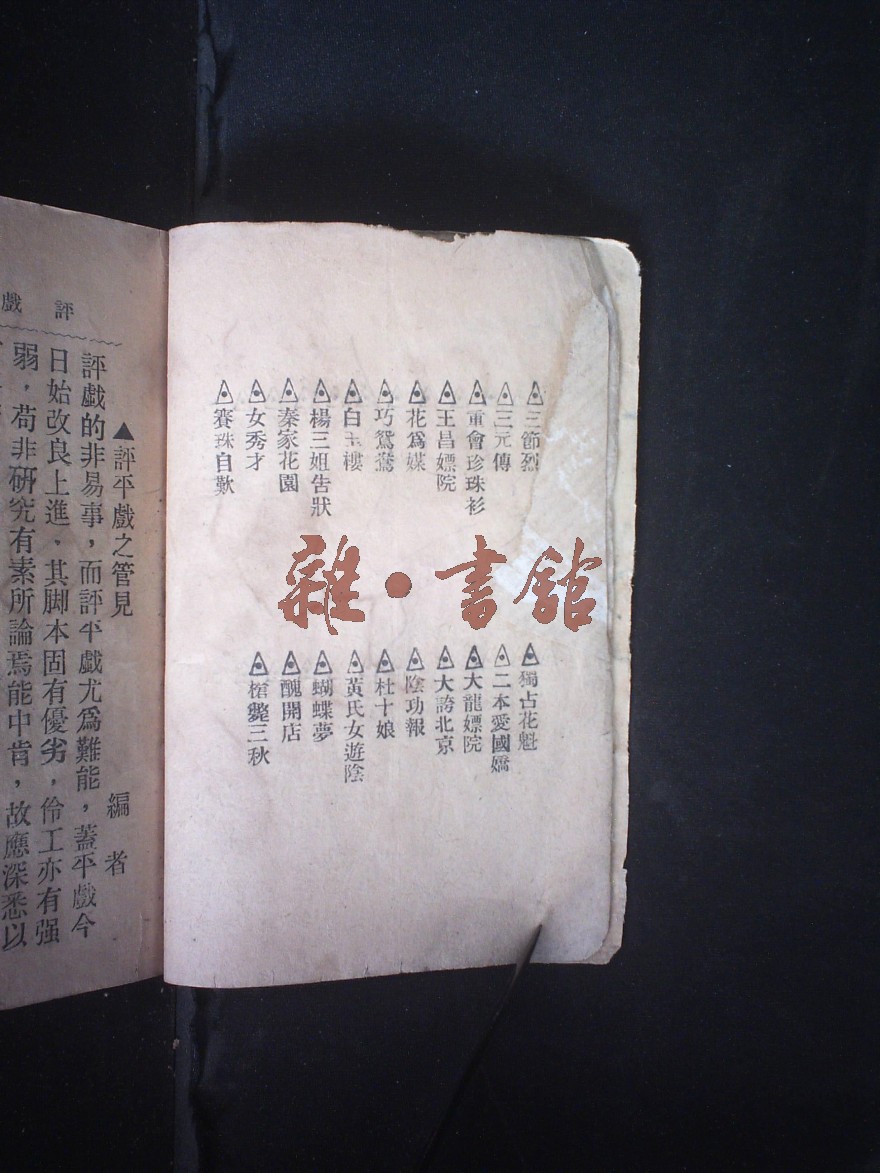 三節烈
三元傳
重會珍珠衫
王昌嫖院
花爲媒
巧鴛鴦
白玉樓
楊三姐告狀
秦家花園
女秀才
賽珠自歎
獨占花魁
二本愛國嬌
大龍嫖院
大誇北京
陰功報
杜十娘
黃氏女遊陰
蝴蝶夢
醜開店
槍斃三秋
雜·書館
評戲
▲評平戲之管見 編者
評戲的非易事，而評平戲尤爲難能，蓋平戲今
日始改良上進，其脚本固有優劣，伶工亦有强
弱，苟非研究有素所論焉能中肯，故應深悉以